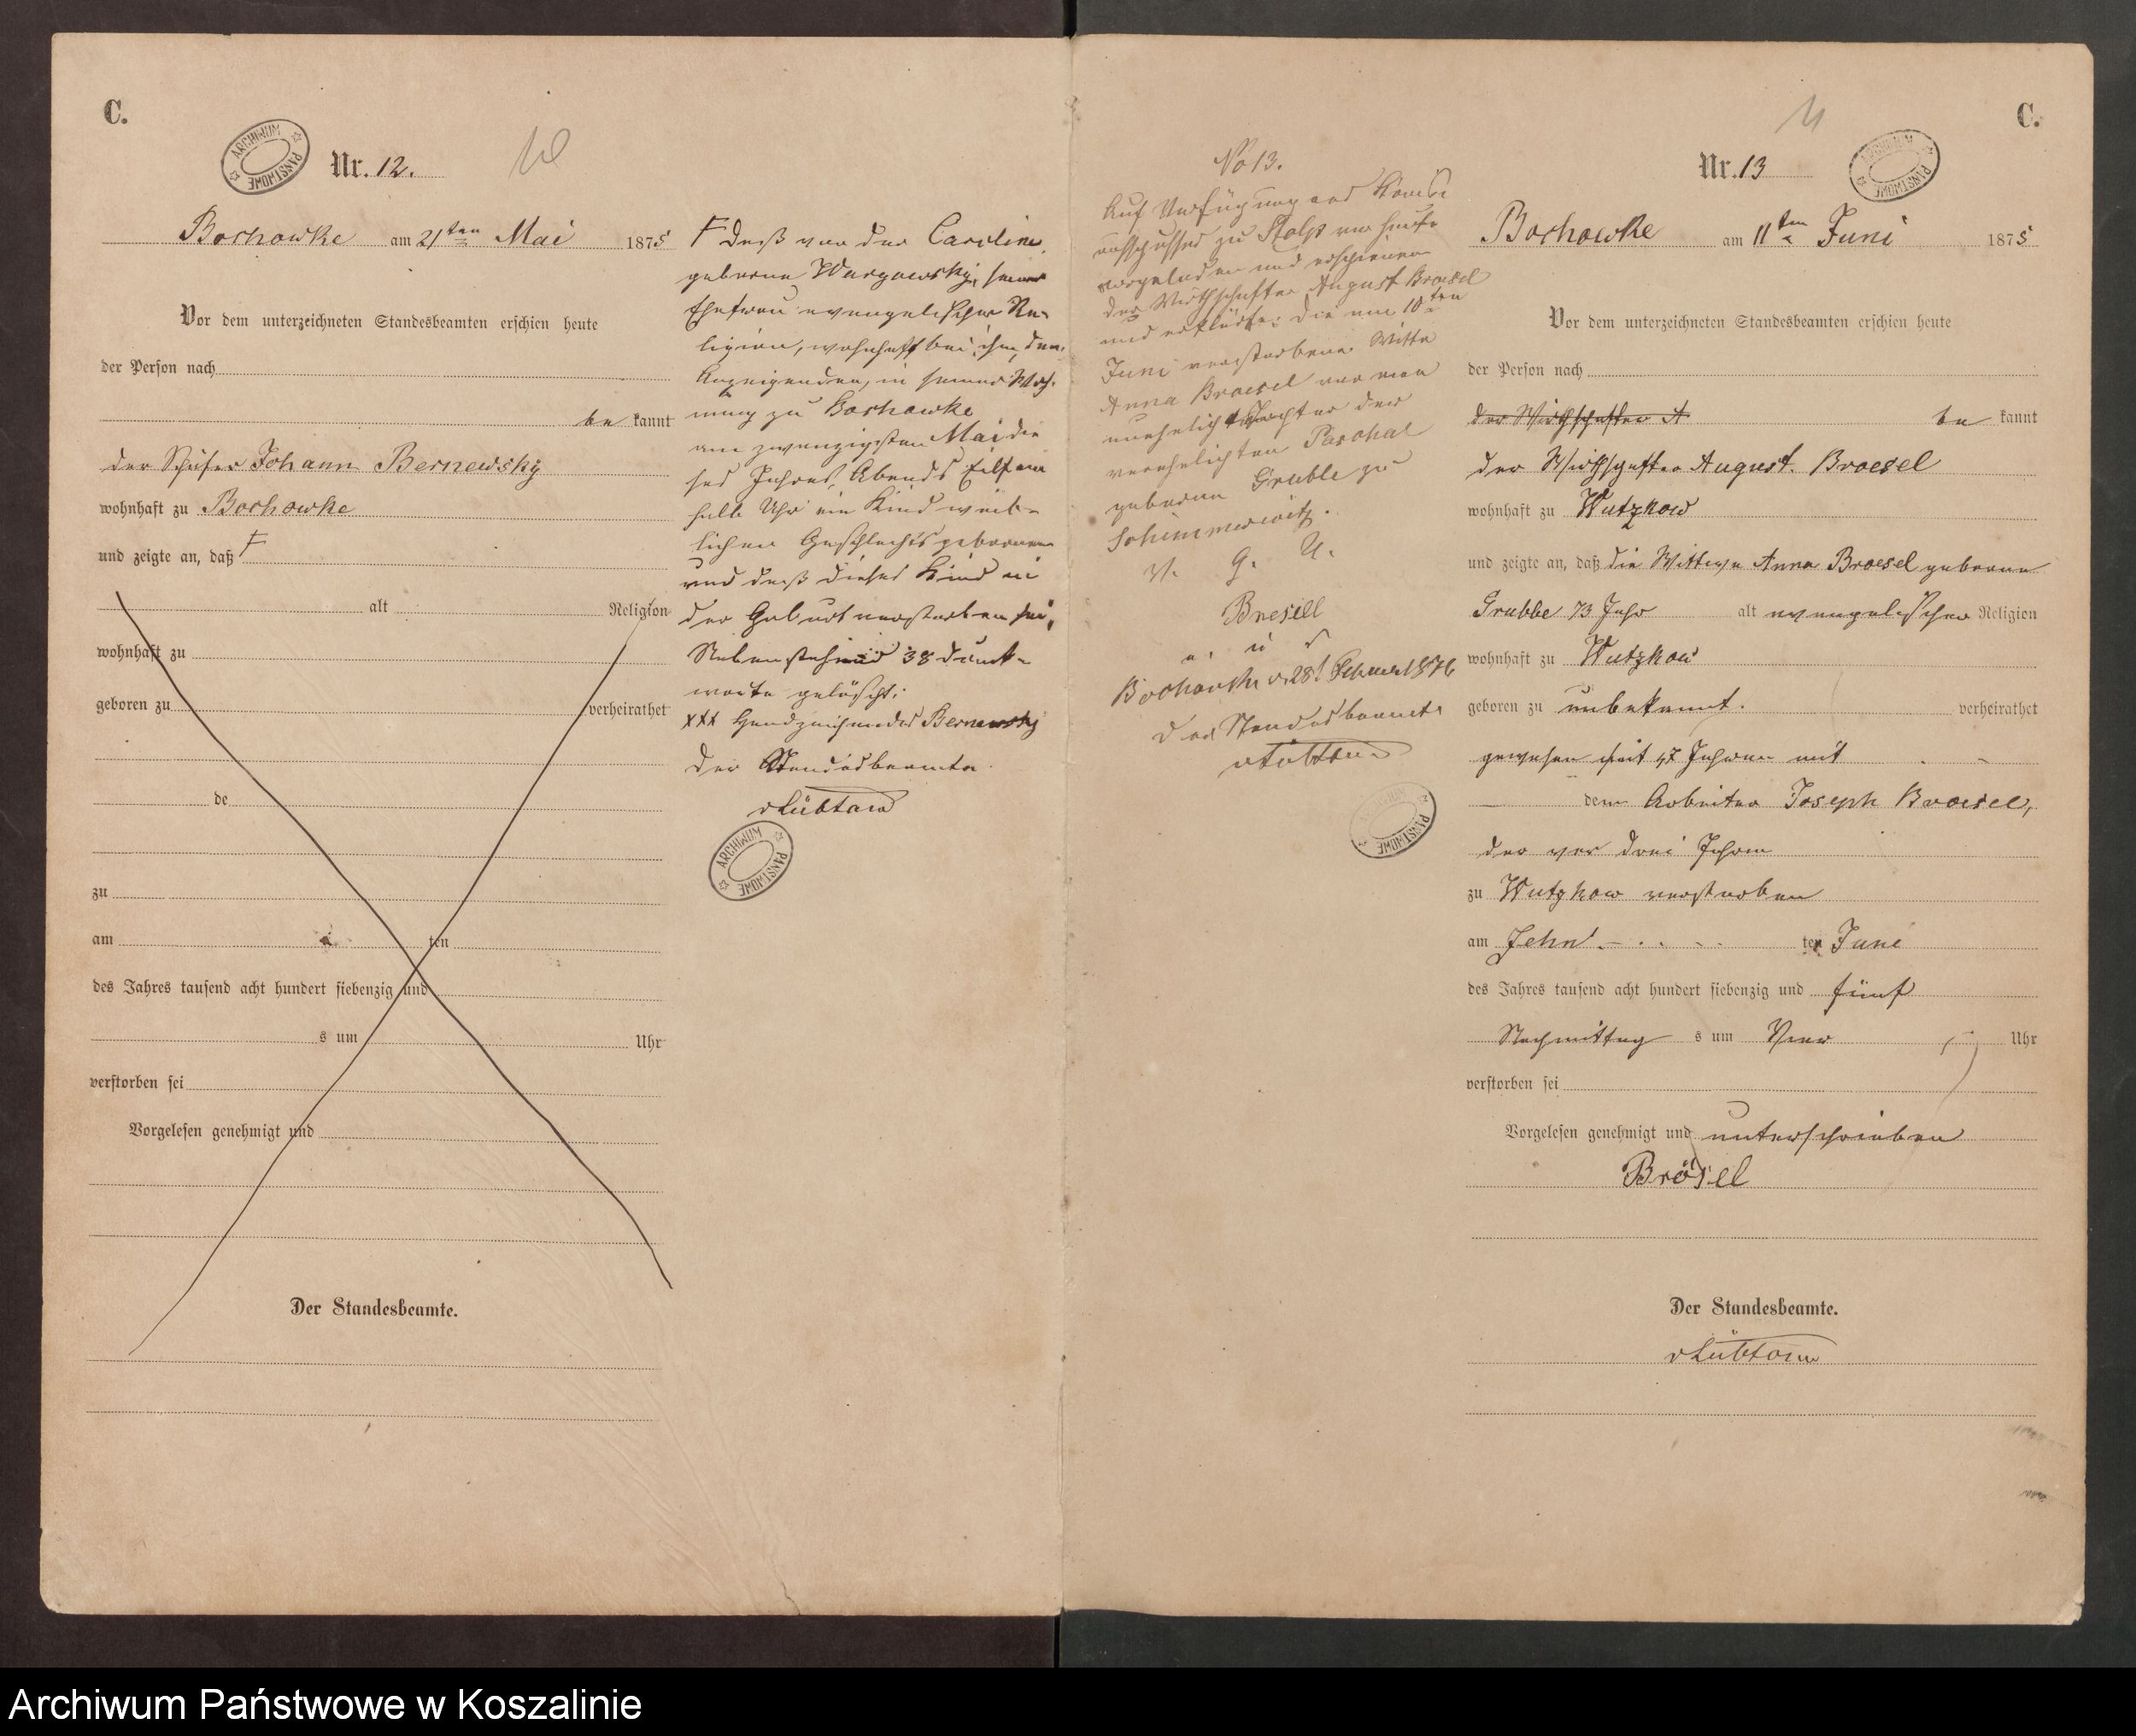 C.
ARCHIWUM PAŃSTWOWE
Nr. 12.
Borkowke am 21ten Mai 1875
Vor dem unterzeichneten Standesbeamten erschien heute
der Person nach
be kannt
der Schäfer Johann Bernewsky
wohnhaft zu Borkowke
und zeigte an, daß F
alt Religion
wohnhaft zu
geboren zu verheirathet
de
zu
am ten
des Jahres tausend acht hundert siebenzig und
s um Uhr
verstorben sei
Vorgelesen genehmigt und
Der Standesbeamte.
F daß von der Caroline
geborne Wargowsky, seiner
Ehefrau evangelischer Re-
ligion, wohnhaft bei ihm, dem
Anzeigenden, in seiner Woh-
nung zu Borkowke
am zwanzigsten Mai die
ses Jahres, Abends Eilf ein
halb Uhr ein Kind weib-
lichen Geschlechts geboren
und daß dieses Kind in
der Geburt verstorben sei,
Nebenstehend 38 Druck-
worte gelöscht.
xxx Handzeichen des Bernewsky
Der Standesbeamte
vLübtow
ARCHIWUM PAŃSTWOWE
No 13.
Auf Verfügung des
ausschusses zu Stolp war heute
vorgeladen und erschienen
der Wirthschafter August Broesel
und erklärte: die am 10ten
Juni verstorbene Wittwe
Anna Broesel war eine
unehelich Tochter der
verehelichten Paschal
geborne Grubbe zu
Schimmerwitz.
V. G. U.
Bresell
a. u. s.
Borkowke d. 28t Februar 1876
Der Standesbeamte
vLübtow
ARCHIWUM PAŃSTWOWE
C.
Nr. 13
ARCHIWUM PAŃSTWOWE
Borkowke am 11ten Juni 1875
Vor dem unterzeichneten Standesbeamten erschien heute
der Person nach
der Wirthschafter A be kannt
der Wirthschafter August Broesel
wohnhaft zu Wutzkow
und zeigte an, daß die Wittwe Anna Broesel geborne
Grubbe 73 Jahr alt evangelischer Religion
wohnhaft zu Wutzkow
geboren zu unbekannt. verheirathet
gewesen seit 47 Jahren mit
dem Arbeiter Joseph Broesel,
der vor drei Jahren
zu Wutzkow verstorben
am Zehn ten Juni
des Jahres tausend acht hundert siebenzig und fünf
Nachmittag s um Vier Uhr
verstorben sei
Vorgelesen genehmigt und unterschrieben
Brösel
Der Standesbeamte.
vLübtow
Archiwum Państwowe w Koszalinie